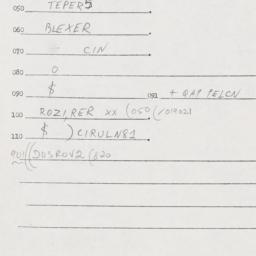 050 TEPER5
060 BLEXER
070 CIN
080 0
090 $ 091 + QAP TELCN
100 ROZI,RER XX (050 (
110 $ ) CIRULN81
DOSROV2 (